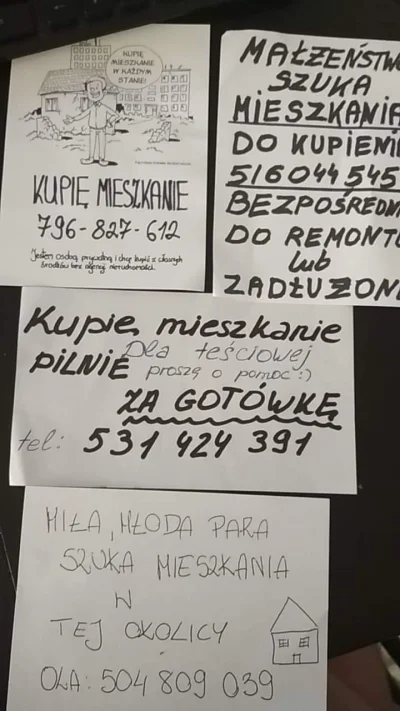 KUPIĘ
MIESZKANIE
W KAŻDYM
STANIE!
KUPIĘ MIESZKANIE
796-827-612
Jestem osobą prywatną i chcę kupić z własnych
środków bez agencji nieruchomości.
MAŁŻEŃSTWO
SZUKA
MIESZKANIA
DO KUPIENI
516044545
BEZPOŚREDN
DO REMONTU
lub
ZADŁUŻONE
Kupię mieszkanie
PILNIE Dla teściowej
proszę o pomoc :)
ZA GOTÓWKĘ
tel: 531 424 391
MIŁA, MŁODA PARA
SZUKA MIESZKANIA
W
TEJ OKOLICY
OLA: 504 809 039